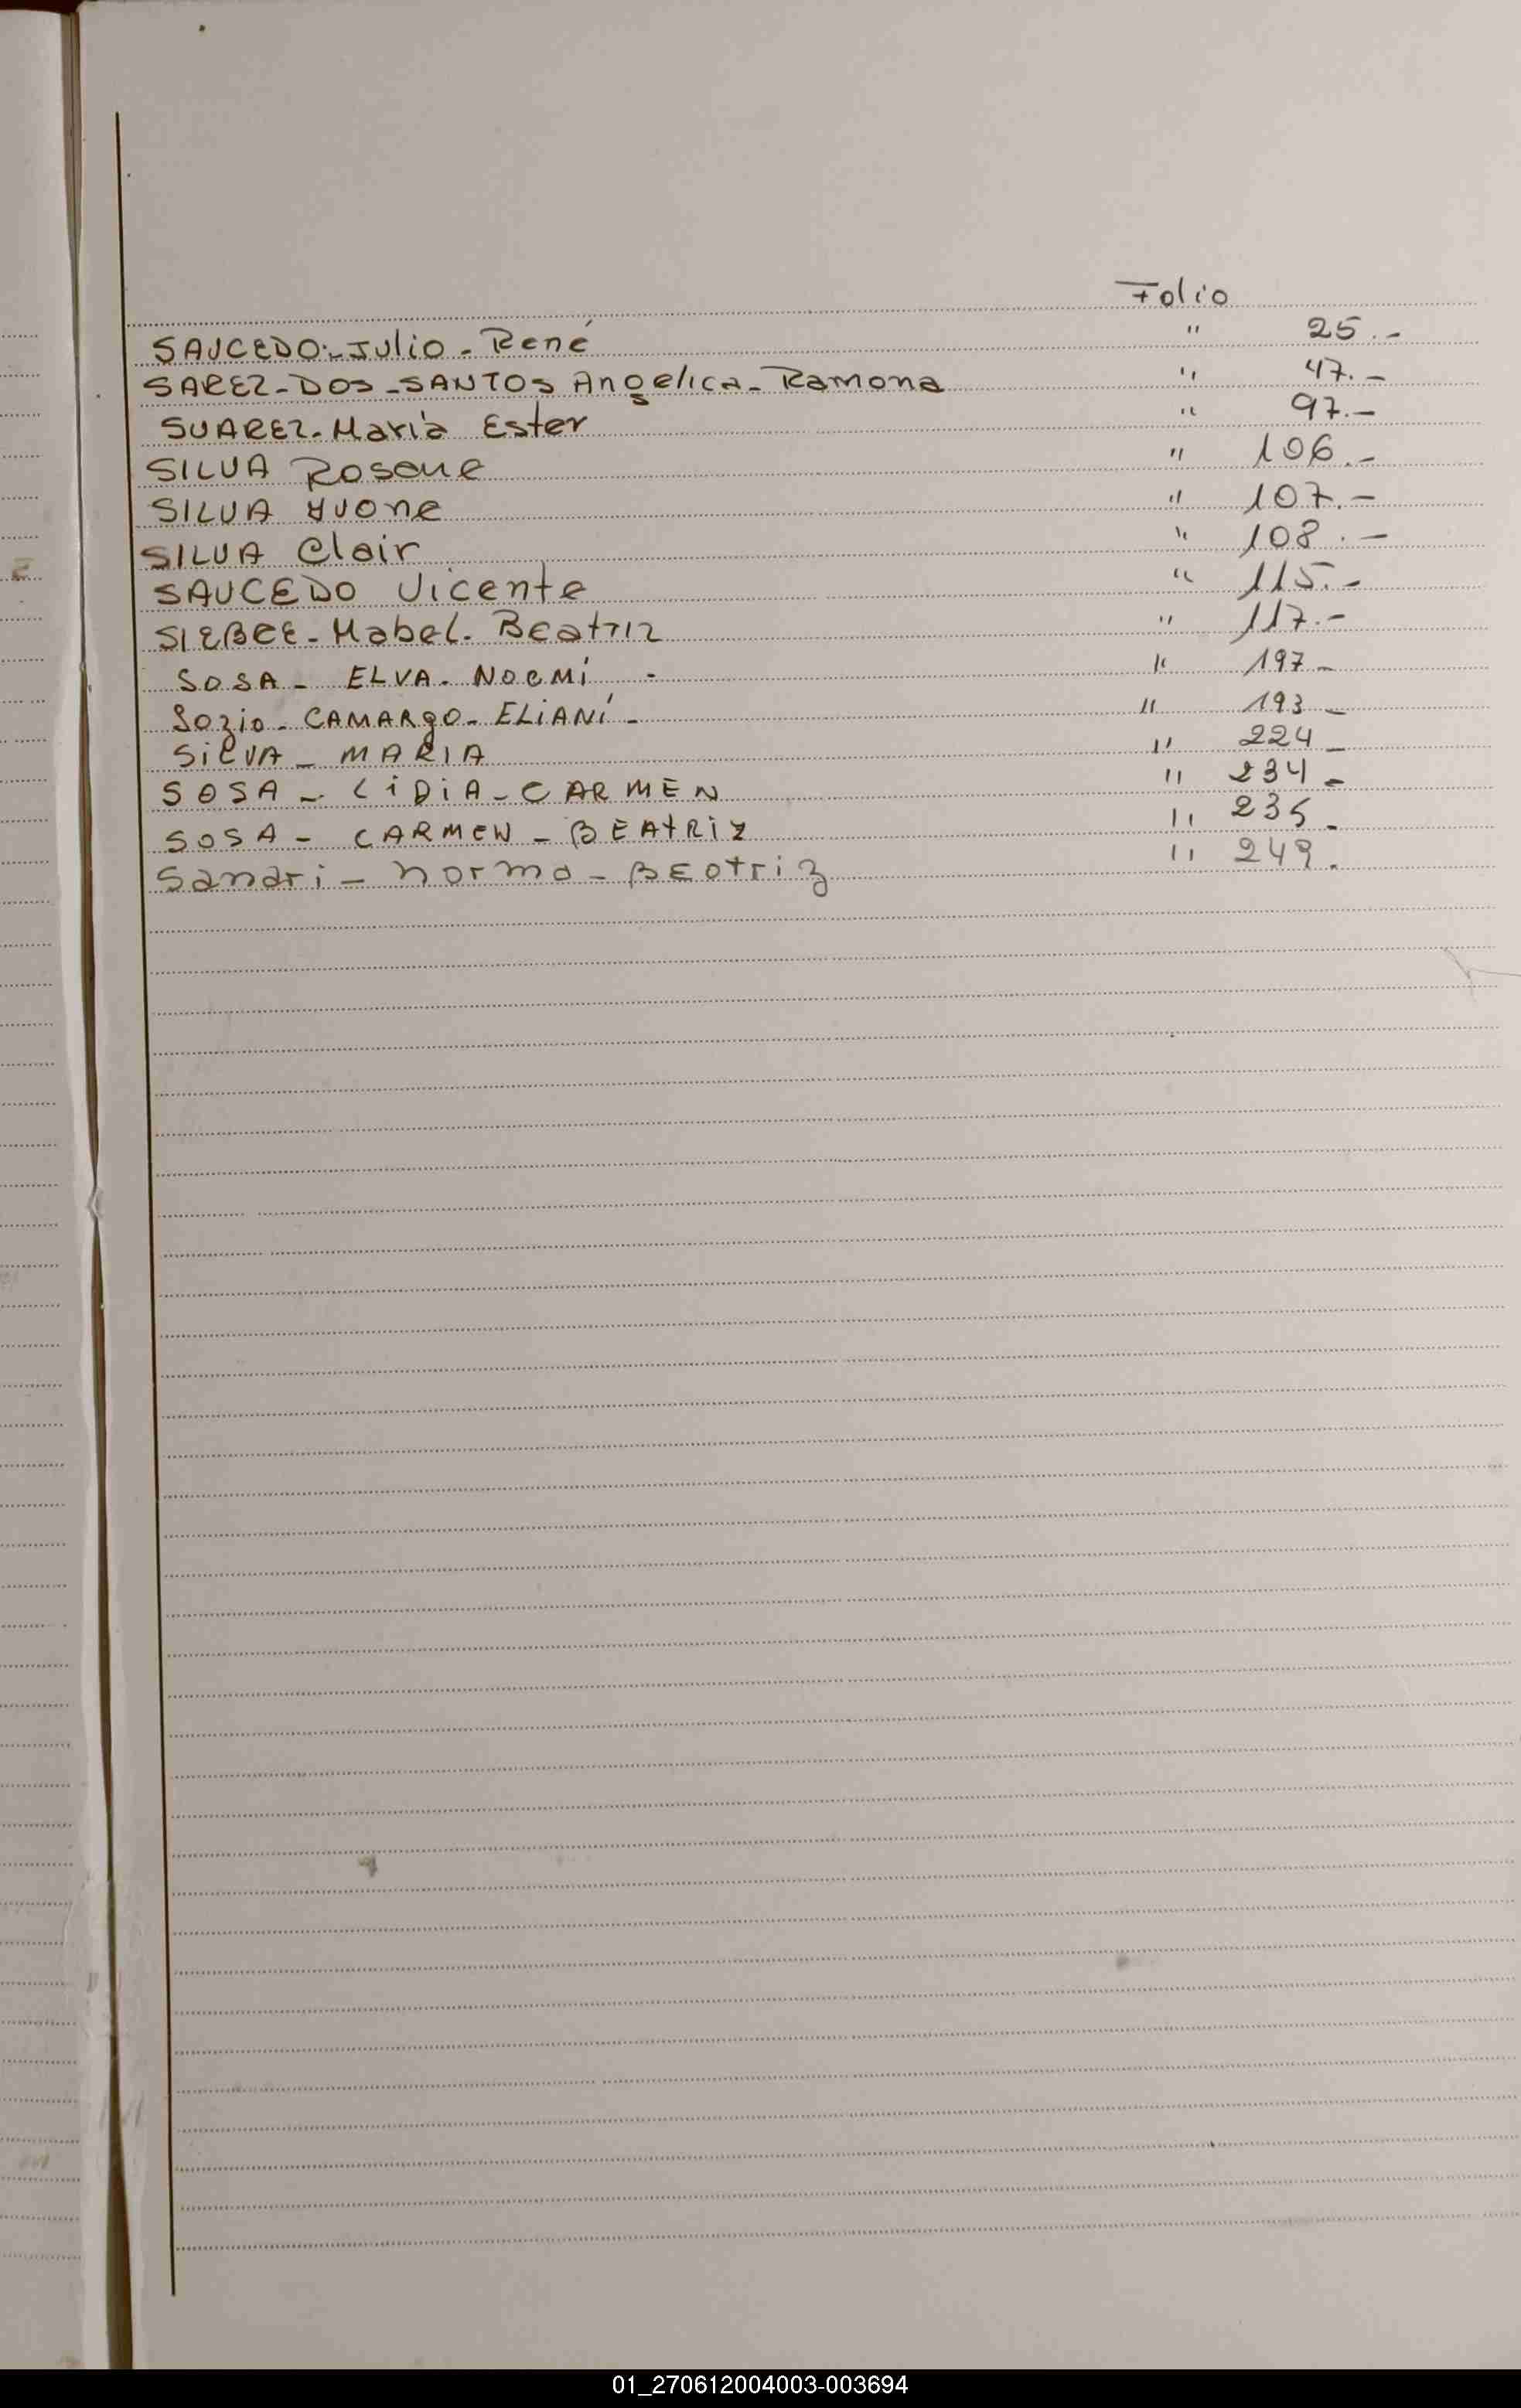 Folio
SAUCEDO.- Julio - René " 25.-
SAREZ - DOS - SANTOS Angelica - Ramona " 47.-
SUAREZ - María Ester " 97.-
SILVA Rosene " 106.-
SILVA Yvone " 107.-
SILVA Clair " 108.-
SAUCEDO Vicente " 115.-
SIEBEE - Mabel - Beatriz " 117.-
SOSA - ELVA - NOEMÍ - " 197-
Sozio - CAMARgO - ELiANí - " 193-
SiLVA - MARIA " 224-
SOSA - LiDiA - CARMEN " 234-
SOSA - CARMEN - BEAtRiz " 235-
Sanari - norma - BEatriz " 249.
01_270612004003-003694